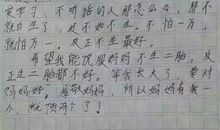 爱学了，不听话的人那怎么办，想不
就白生了，还不如不生。不怕一万，
就怕万一。反正不生最好。
希望我能说服妈妈不生二胎，反
正生二胎都不好。等我长大了，要对
妈妈好，孝敬妈妈，所以妈妈有我一
个，就顶两个了！